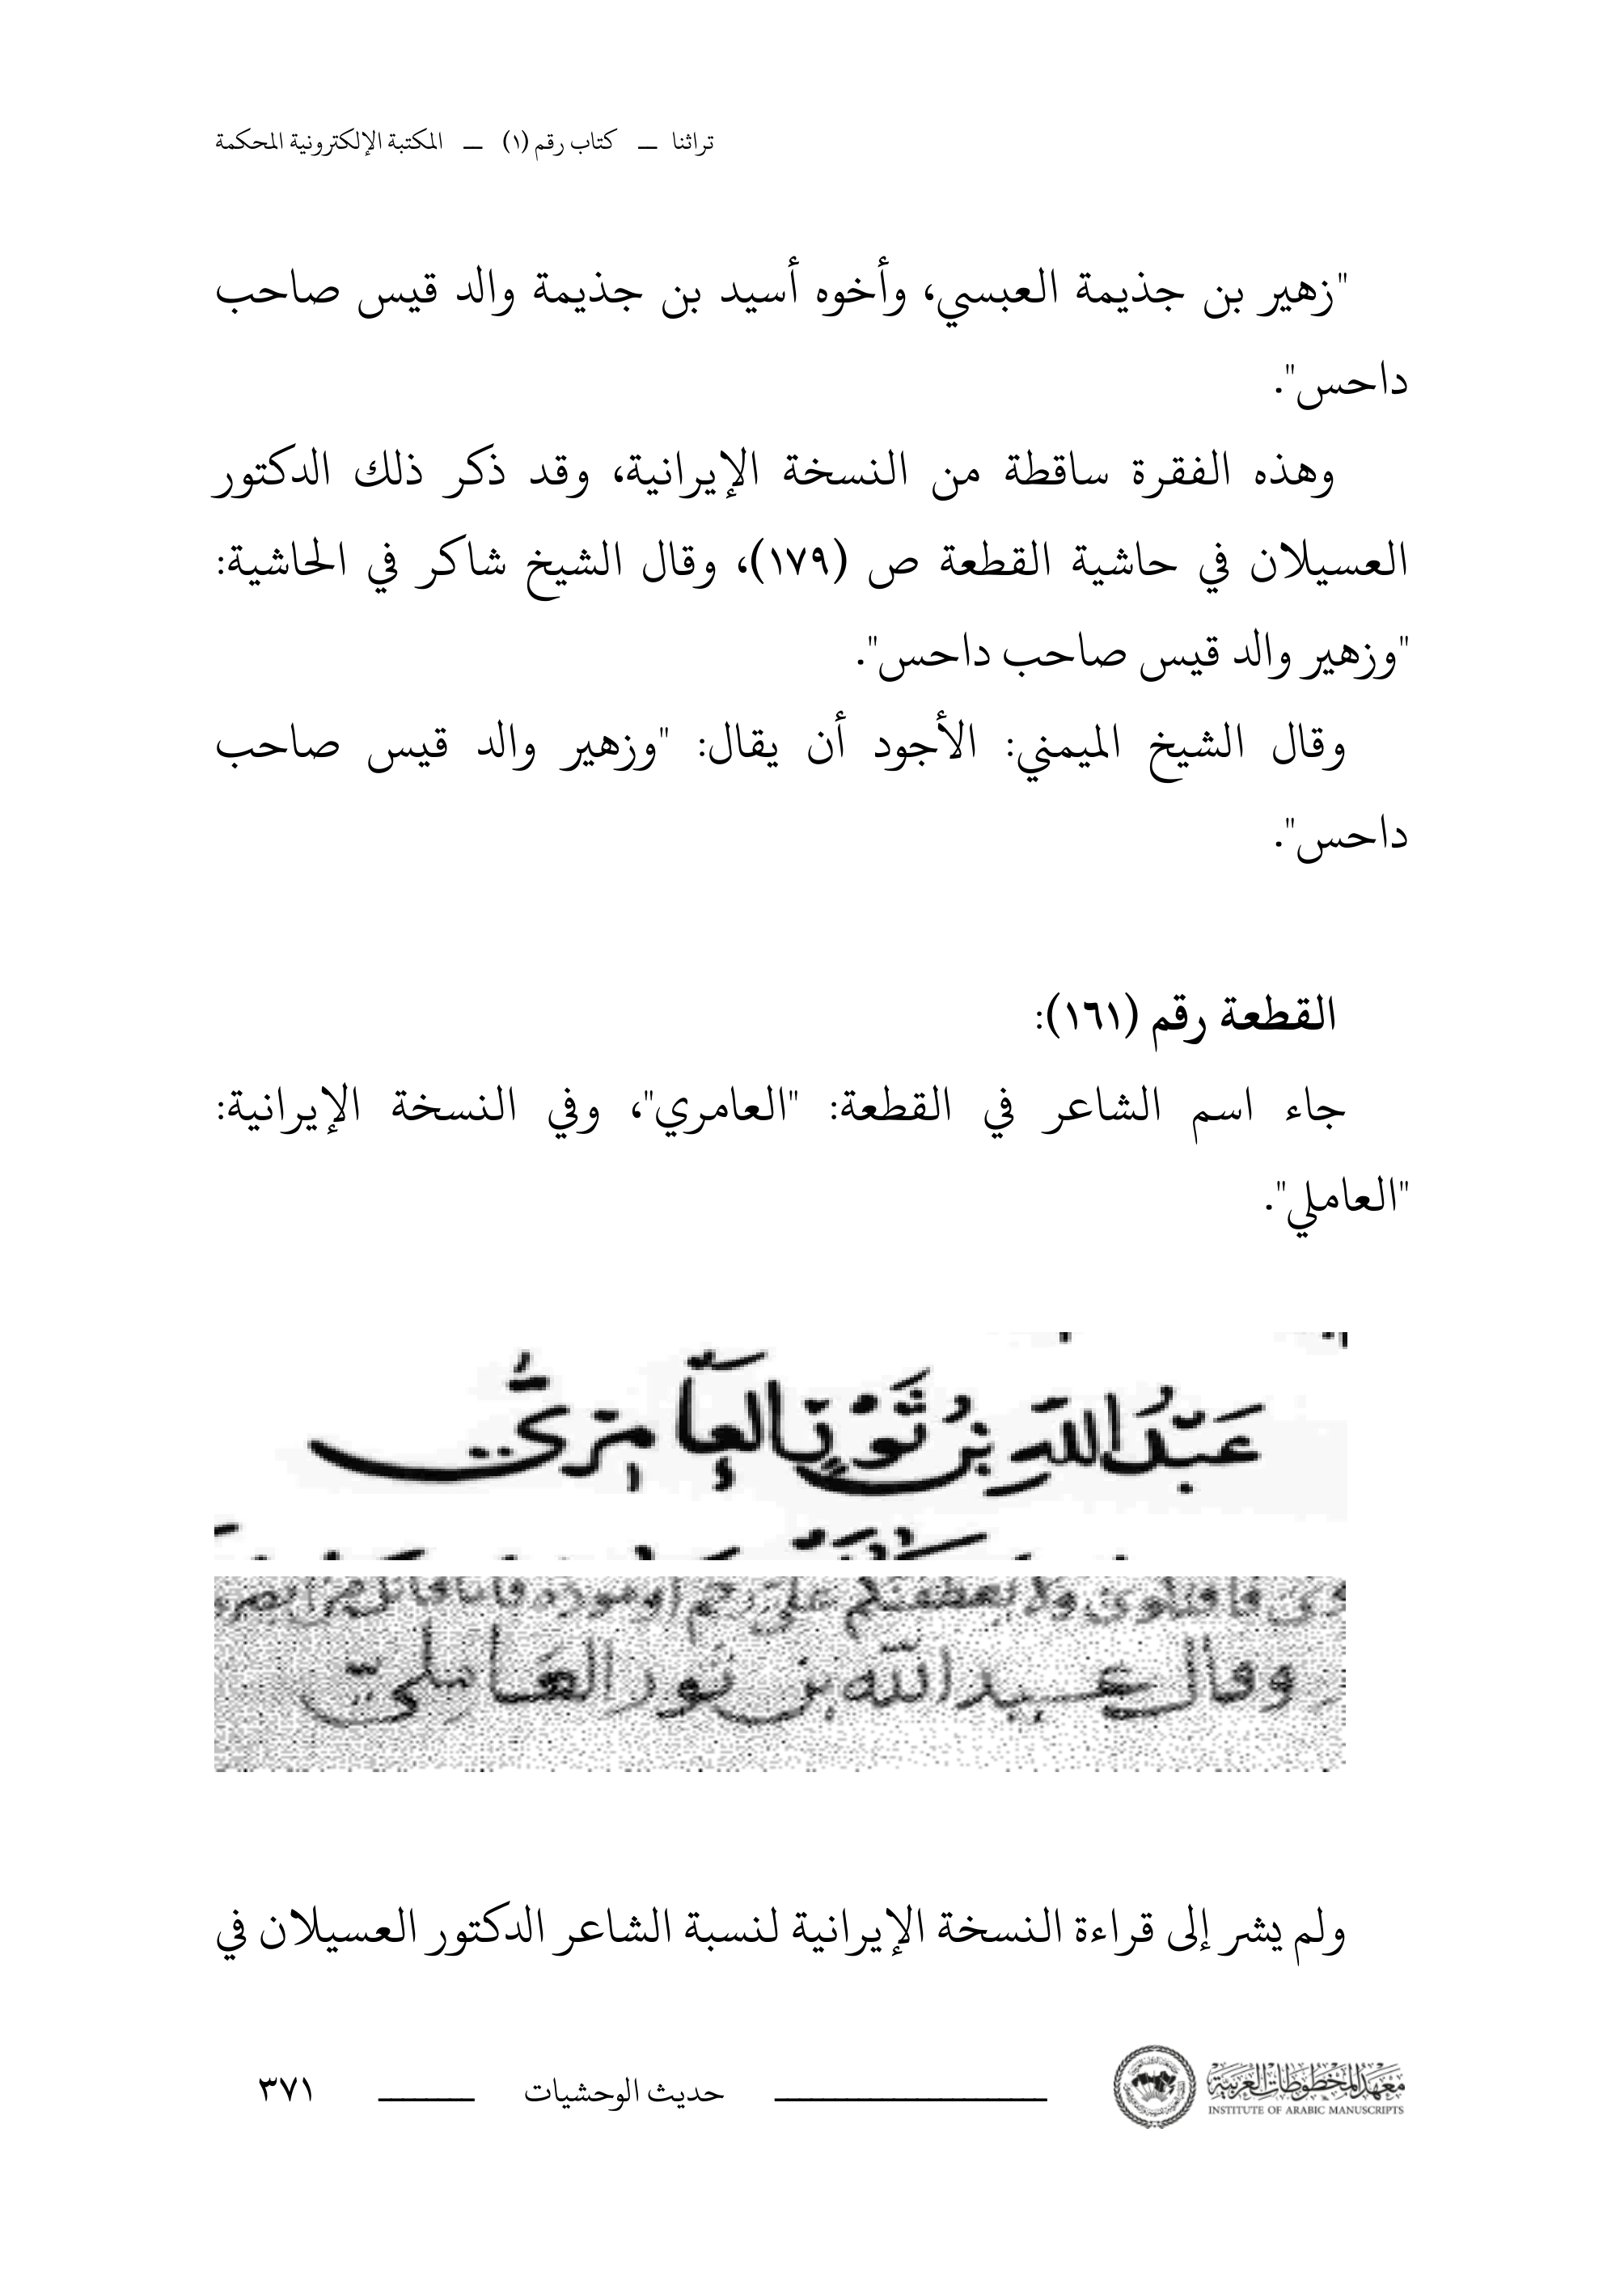 تراثنا — كتاب رقم (١) — المكتبة الإلكترونية المحكمة
"زهير بن جذيمة العبسي، وأخوه أسيد بن جذيمة والد قيس صاحب
داحس".
وهذه الفقرة ساقطة من النسخة الإيرانية، وقد ذكر ذلك الدكتور
العسيلان في حاشية القطعة ص (١٧٩)، وقال الشيخ شاكر في الحاشية:
"وزهير والد قيس صاحب داحس".
وقال الشيخ الميمني: الأجود أن يقال: "وزهير والد قيس صاحب
داحس".
القطعة رقم (١٦١):
جاء اسم الشاعر في القطعة: "العامري"، وفي النسخة الإيرانية:
"العاملي".
عبد الله بن ثور العامري
ولا على رحم
وقال عبد الله بن ثور العاملي
ولم يشر إلى قراءة النسخة الإيرانية لنسبة الشاعر الدكتور العسيلان في
معهد المخطوطات العربية
INSTITUTE OF ARABIC MANUSCRIPTS
حديث الوحشيات
٣٧١